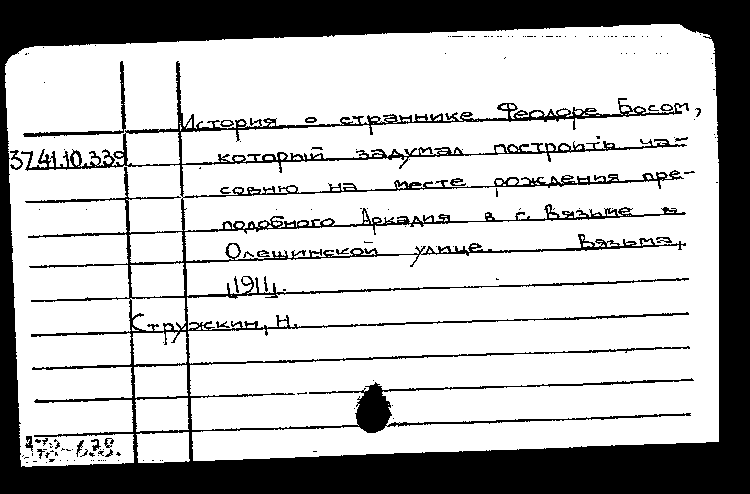 История о страннике Феодоре Босом,
37.41.10.339. который задумал построить ча-
совню на месте рождения пре-
подобного Аркадия в г. Вязьме в
Олешинской улице. Вязьма,
[1911].
Стружкин, Н.
378-678.